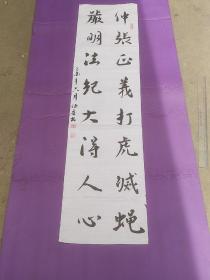 仲張正義打虎滅蝇
嚴明法紀大得人心